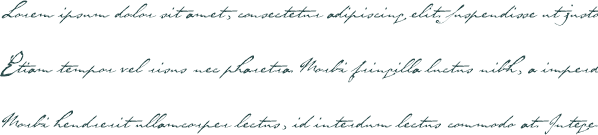 Lorem ipsum dolor sit amet, consectetur adipiscing elit. Suspendisse ut justo
Etiam tempor vel risus nec pharetra. Morbi fringilla luctus nibh, a imperd
Morbi hendrerit ullamcorper lectus, id interdum lectus commodo at. Intege